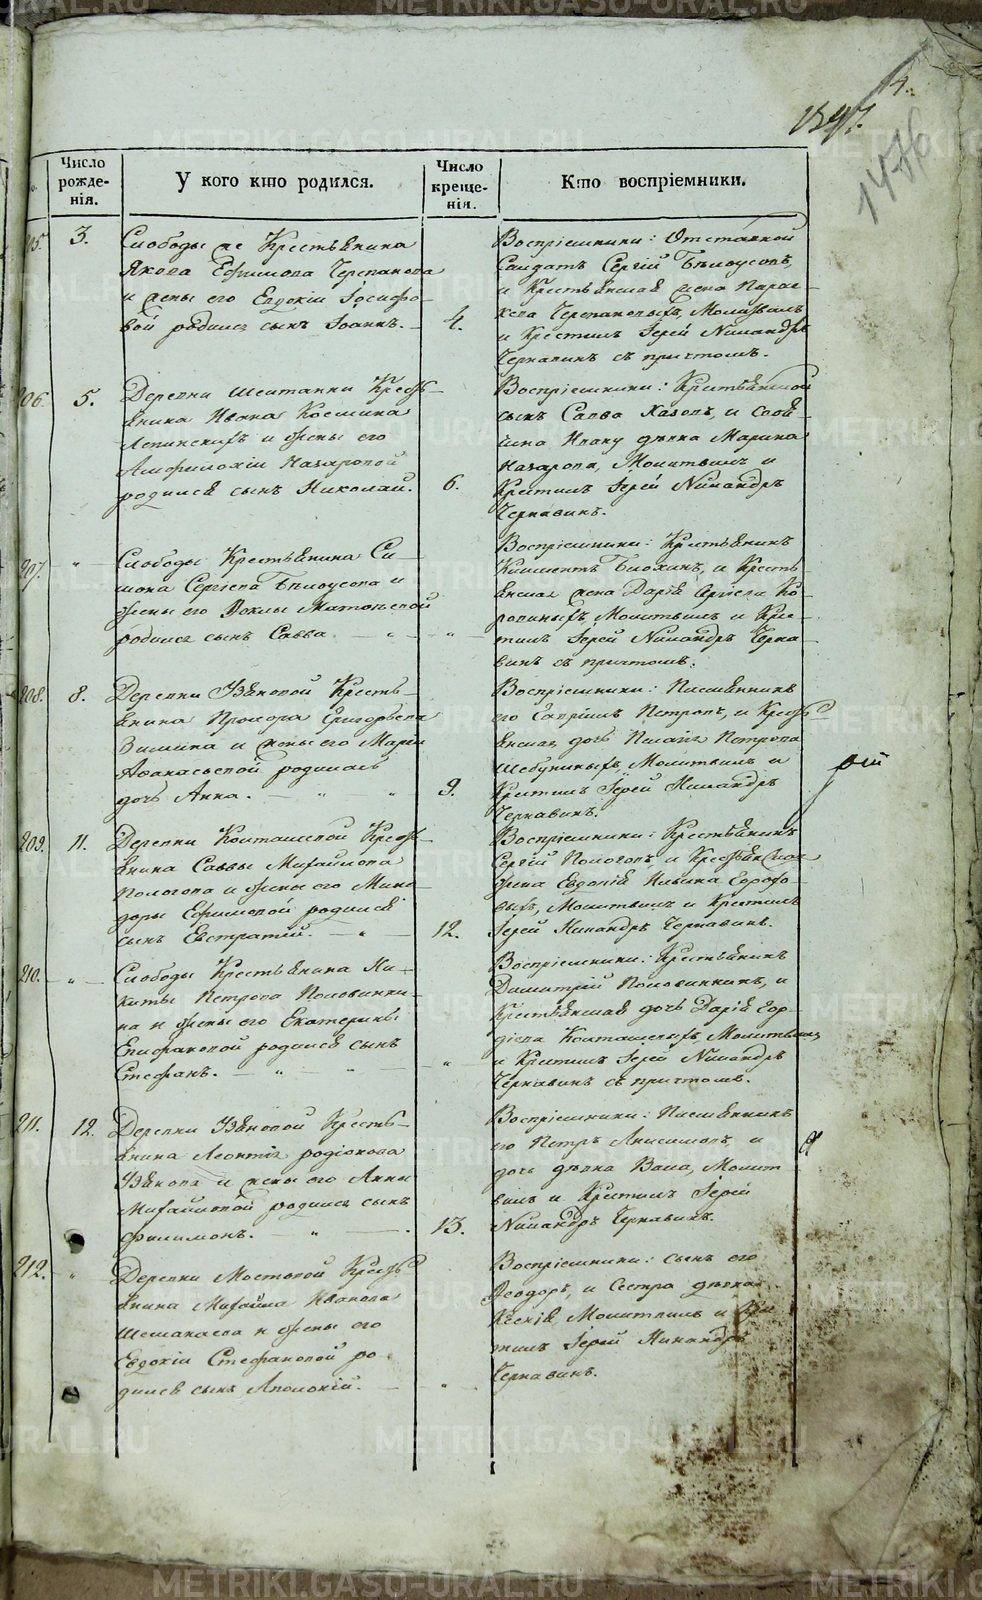 1397.
1476
Число рожде- нія.
У кого кто родился.
Число креще- нія.
Кто воспріемники.
205. 3.
Слободы не Крестьянина
Якова Ефимова Черепанова
и жены его Евдокіи Іосифо-
вой родился сынъ Іоаннъ. 4.
Воспріемники: Отставной
Салдатъ Сергій Бѣлоусовъ,
и Крестьянская жена Парас-
кева Черепановыхъ, Молитвилъ
и Крестилъ Іерей Никандръ
Чернавинъ съ причтомъ.
206. 5.
Деревни Шептанки Кресть-
янина Ивана Космина
Лепинскихъ и жены его
Амфилохіи Назаровой
родился сынъ Николай. 6.
Воспріемники: Крестьянской
сынъ Савва Хазовъ, и
дѣвка Марина
Назарова, Молитвилъ и
Крестилъ Іерей Никандръ
Чернавинъ.
207. "
Слободы Крестьянина Си-
мона Сергіева Бѣлоусова и
жены его Ѳеклы
родился сынъ Савва. "
Воспріемники: Крестьянинъ
Климентъ Блохинъ, и Кресть-
янская жена Дарія Сергіева Ко-
ровиныхъ, Молитвилъ и Крес-
тилъ Іерей Никандръ Черна-
винъ съ причтомъ.
208. 8.
Деревни Узяновой Кресть-
янина Прохора Григорьева
Зимина и жены его Маріи
Аѳанасьевой родилась
дочь Анна. 9.
Воспріемники: Писменникъ
его Гавріилъ Петровъ, и Кресть-
янская дочь Петрова
Шебуниныхъ Молитвилъ и
Крестилъ Іерей Никандръ
Чернавинъ.
209. 11.
Деревни Колташевой Кресть-
янина Саввы Михайлова
Пологова и жены его Мино-
доры Ефимовой родился
сынъ Евстратій. 12.
Воспріемники: Крестьянинъ
Сергій Пологовъ и Крестьянская
жена Евдокія Ильина Дорофе-
выхъ, Молитвилъ и Крестилъ
Іерей Никандръ Чернавинъ.
210. "
Слободы Крестьянина Ни-
киты Петрова Половинки-
на и жены его Екатерины
Епифановой родился сынъ
Стефанъ. "
Воспріемники: Крестьянинъ
Димитрій Половинкинъ, и
Крестьянская дочь Дарія Гор-
діева Колташевыхъ, Молитвилъ
и Крестилъ Іерей Никандръ
Чернавинъ съ причтомъ.
211. 12.
Деревни Узяновой Кресть-
янина Леонтія родіонова
Узянова и жены его Анны
Михайловой родился сынъ
Филимонъ. 13.
Воспріемники: Писменникъ
его Петръ Анисимовъ и
дочь дѣвка Васса, Молит-
вилъ и Крестилъ Іерей
Никандръ Чернавинъ.
212. "
Деревни Мостовой Кресть-
янина Михайла Иванова
Шеманаева и жены его
Евдокіи Стефановой ро-
дился сынъ Аполоній. "
Воспріемники: сынъ его
Ѳеодоръ, и Сестра дѣвка
Ксенія Молитвилъ и Крес-
тилъ Іерей Никандръ
Чернавинъ.
METRIKI.GASO-URAL.RU